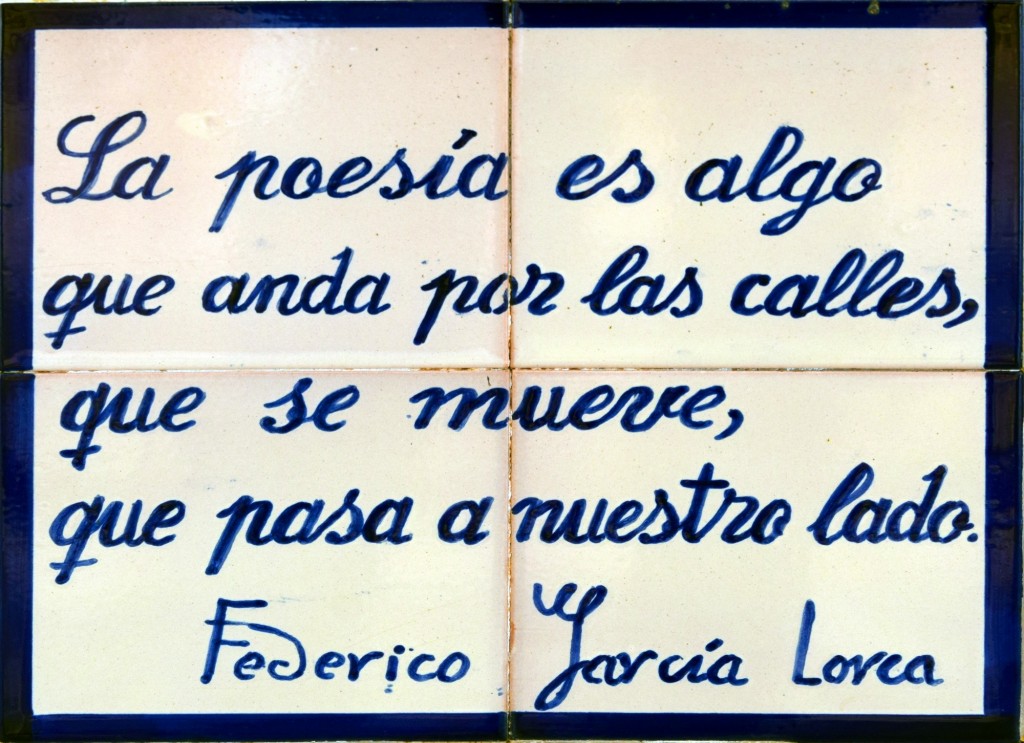 La poesía es algo
que anda por las calles,
que se mueve,
que pasa a nuestro lado.
Federico García Lorca